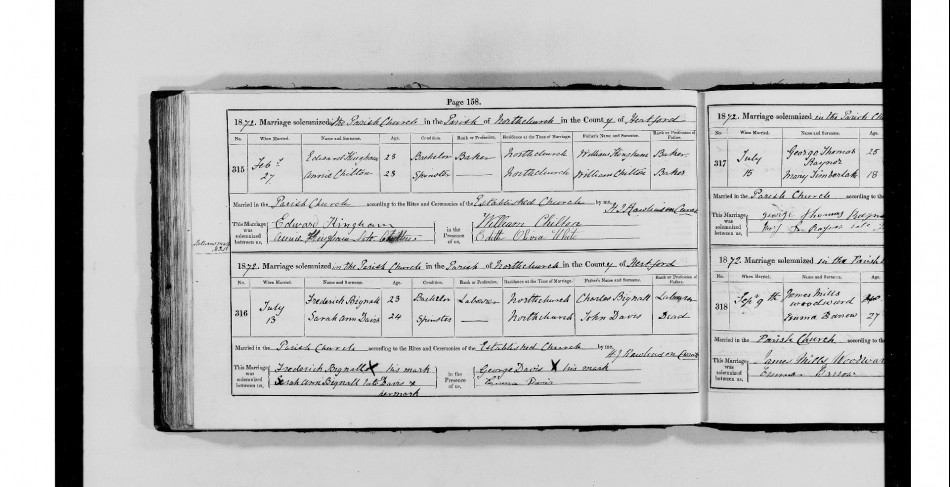 Page 158.
1872. Marriage solemnized in the Parish Church in the Parish of Northchurch in the County of Hertford
No. When Married. Name and Surname. Age. Condition. Rank or Profession. Residence at the Time of Marriage. Father's Name and Surname. Rank or Profession of Father.
315 Feby 27 Edward Kingham 23 Bachelor Baker Northchurch William Kingham Baker
Annie Chilton 23 Spinster — Northchurch William Chilton Baker
Married in the Parish Church according to the Rites and Ceremonies of the Established Church by me, H J Rawlinson Curate
This Marriage was solemnized between us, Edward Kingham in the Presence of us, William Chilton
Annie Kingham late Chilton White
1872. Marriage solemnized in the Parish Church in the Parish of Northchurch in the County of Hertford
No. When Married. Name and Surname. Age. Condition. Rank or Profession. Residence at the Time of Marriage. Father's Name and Surname. Rank or Profession of Father.
316 July 13 Frederick Bignall 23 Bachelor Labourer Northchurch Charles Bignall Labourer
Sarah Ann Davis 24 Spinster — Northchurch John Davis Dead
Married in the Parish Church according to the Rites and Ceremonies of the Established Church by me, H J Rawlinson Curate
This Marriage was solemnized between us, Frederick Bignall X his mark in the Presence of us, George Davis X his mark
Sarah Ann Bignall late Davis x her mark Emma Davis
1872. Marriage solemnized in the Parish
No. When Married. Name and Surname. Age.
317 July 15 George Thomas Raynor 25
Mary Timberlake 18
Married in the Parish Church according to the
This Marriage was solemnized between us, George Thomas
1872. Marriage solemnized in the Parish
No. When Married. Name and Surname. Age.
318 Sept 9th James Mills Woodward
27
Married in the Parish Church according to the
This Marriage was solemnized between us, James Mills Woodwar
Emma